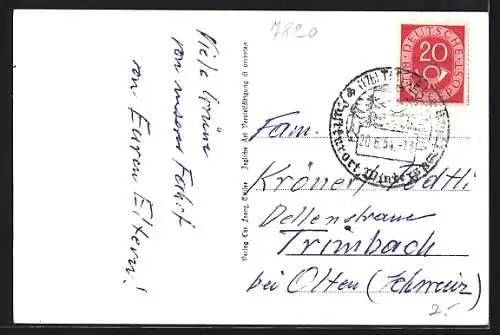 7820
Viele Grüsse
von unserer Fahrt
von Euren Eltern!
Verlag Chr. Franz, Jegliche Art Vervielfältigung ist verboten
DEUTSCHE BUNDESPOST
20
(17b) Ti
Luftkurort
20.6.54.-18
Fam.
Kröner
Dellenstrasse
Trimbach
bei Olten (Schweiz)
2.-